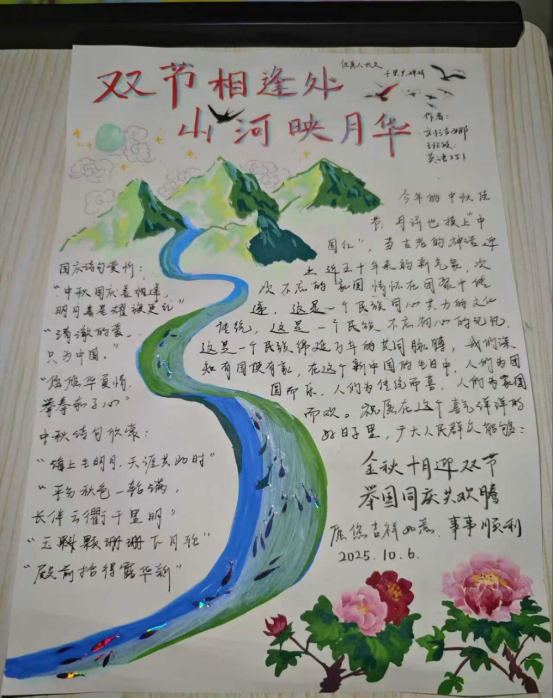 双节相逢处
山河映月华
作者：
英语251
今年的中秋佳
节，月饼也换上"中
国红"，当古老的神话迎
上近五十年来的新气象，次
次不忘的家国情怀在团聚中传
递，这是一个民族同心共力的文化
传统，这是一个民族不忘初心的见记，
这是一个民族绵延万年的共同脉搏，我们深
知有国便有家，在这个新中国的生日中，人们为团
圆而乐，人们为佳节而喜，人们为家国
而欢。祝愿在这个喜气洋洋的
好日子里，广大人民群众能够：
金秋十月迎双节
举国同庆共欢腾
愿您吉祥如意，事事顺利
2025.10.6.
国庆诗句赏析：
"中秋国庆喜相逢，
明月
"清澈的爱，
只为中国。"
华夏情，
中秋诗句欣赏：
"海上生明月，天涯共此时"
"平分秋色一轮满，
长伴云衢千里明"
"玉颗珊珊下月轮"
"殿前拾得露华新"